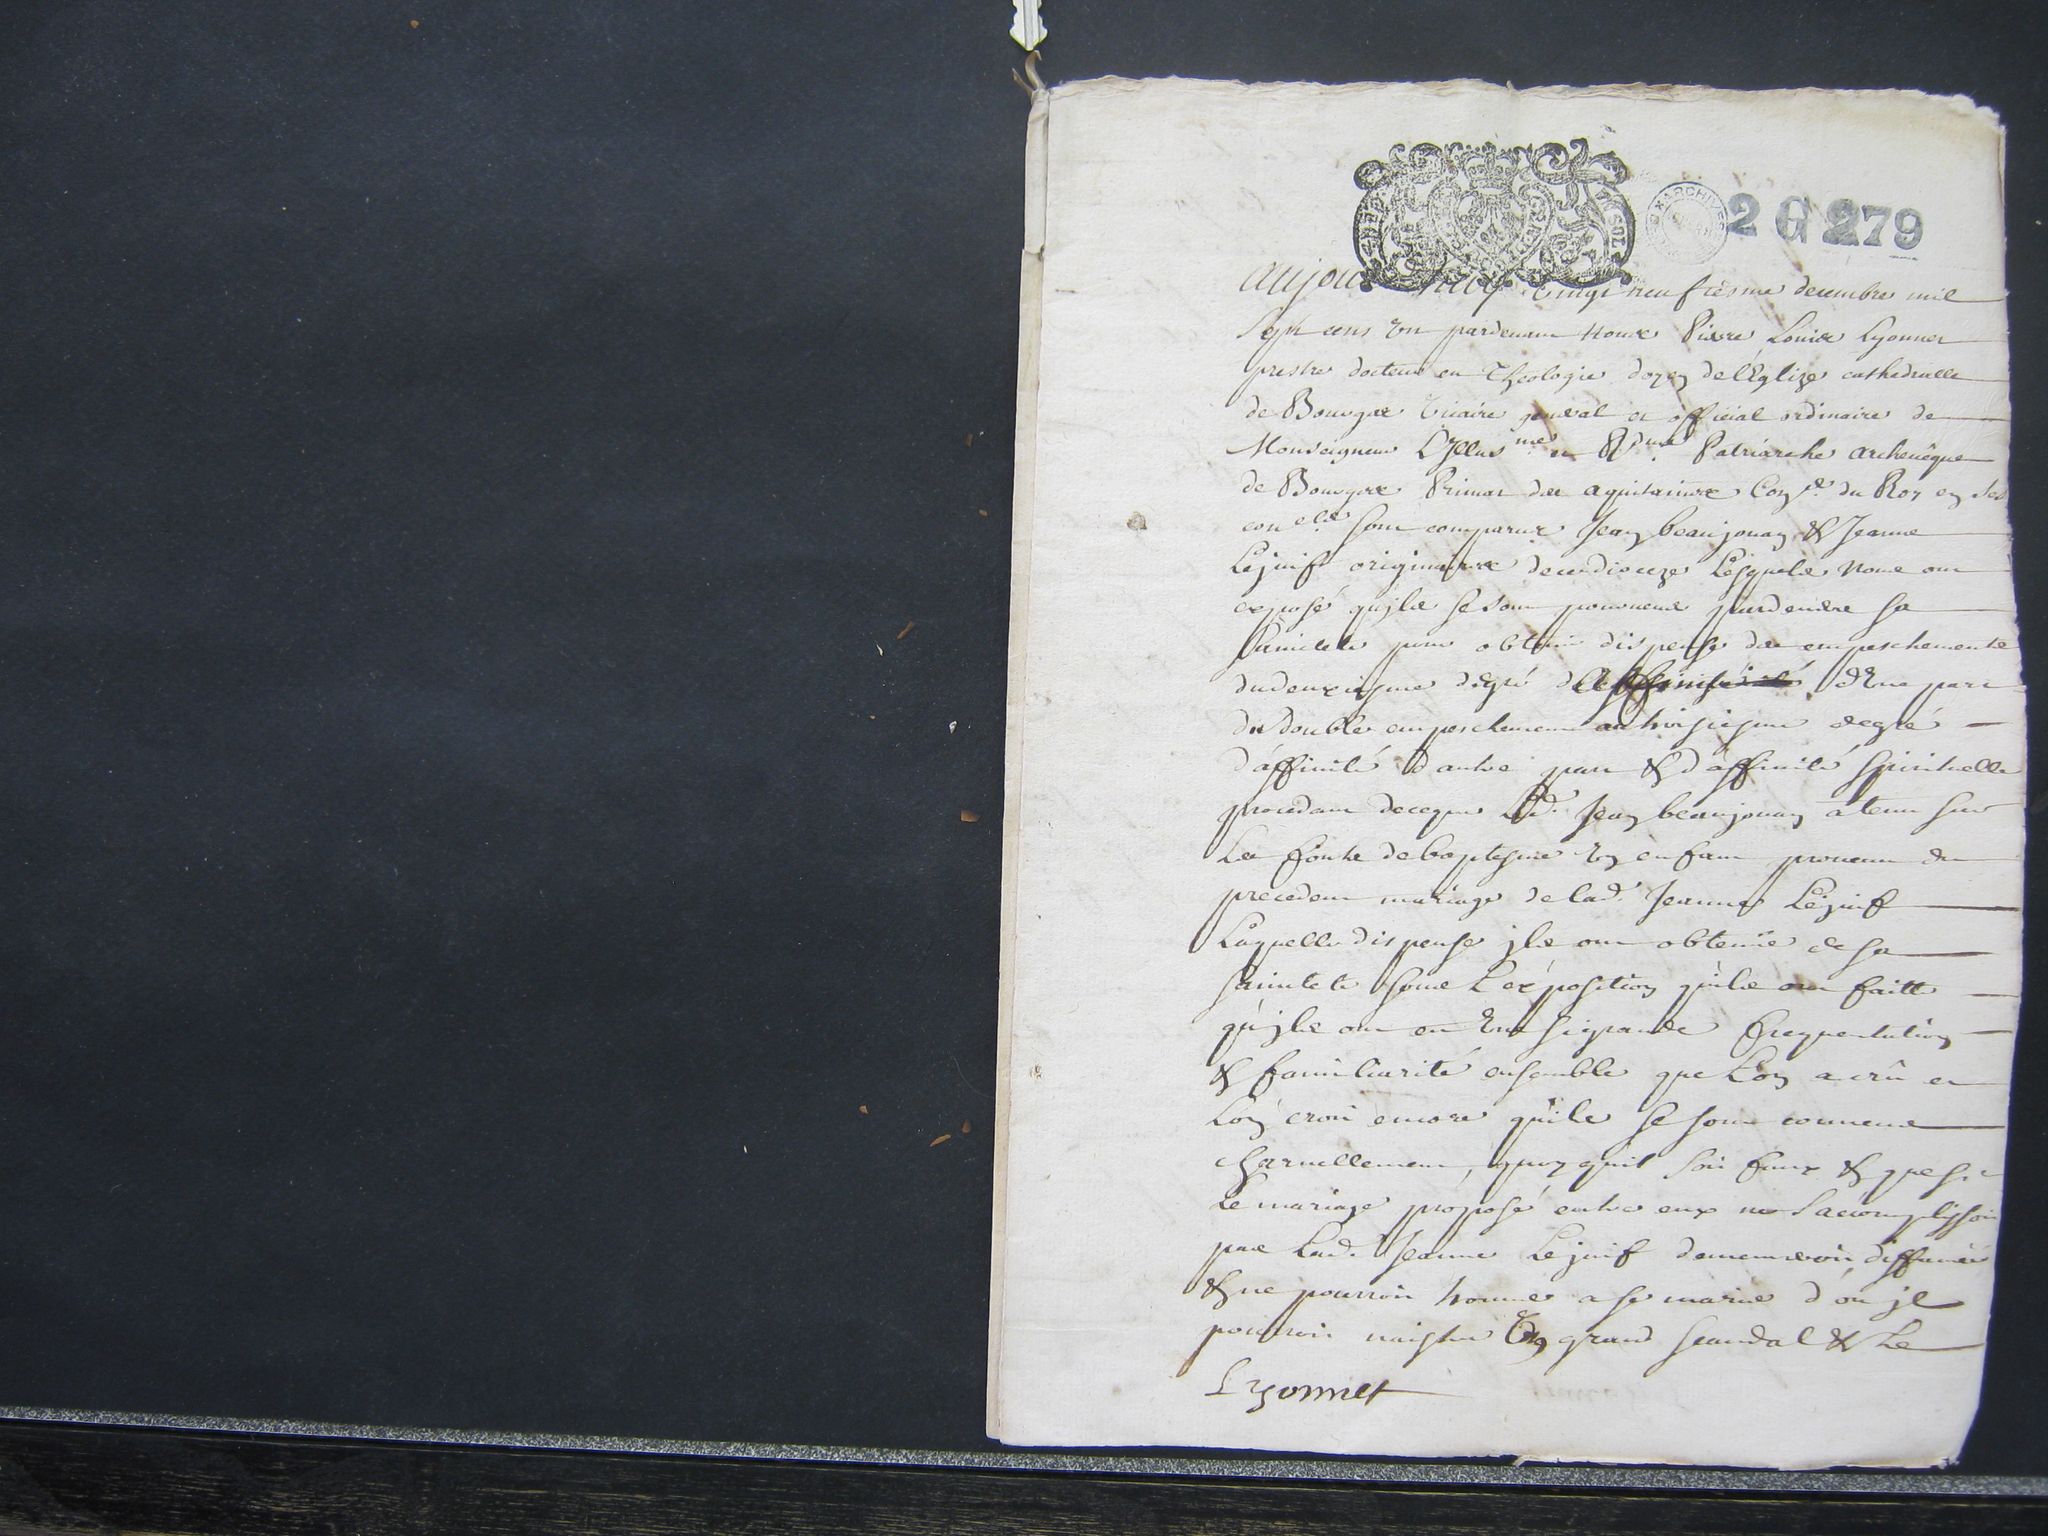 2 G 279
aujourdhuy vingt neufiesme decembre mil
sept cens un pardevant nous Pierre Louis Lyonnet
prestre docteur en Theologie doyen de l'Eglize cathedralle
de Bourges vicaire general et official ordinaire de
Monseigneur L'Illus.me et R.me Patriarche archeuêque
de Bourges Primat des aquitaines Con.er du Roy en ses
con.els sont comparus Jean beaujouan & Jeanne
Lejuif originaires de ce dioceze Lesquels nous ont
exposé qu'jls se sont pourueus pardeuers sa
Sainteté pour obtenir dispense des empeschements
du deuxiesme degré d'affinité d'Une part
du double empeschement au troisiesme degré
d'áffinité d'autre part & d'affinité spirituelle
procedant de ce que led. Jean beaujouan a tenu sur
Les fonts de baptesme un enfant prouenu du
precedent mariage de lad. Jeanne Lejuif
Laquelle dispense jls ont obtenüe de sa
sainteté sous L'exposition qu'ils ont faitte
qu'jls ont eu Une si grande frequentation
& familiarité ensemble que L'on a crû et
L'on croit encore qu'ils se sont connus
charnellement, quoy quil soit faux & que si
Le mariage proposé entre eux ne s'accomplissoit
pas Lad. Jeanne Lejuif demeureroit diffamée
& ne pourroit trouuer a se marier d'où jl
pourroit naistre Un grand scandal & Le
Lyonnet